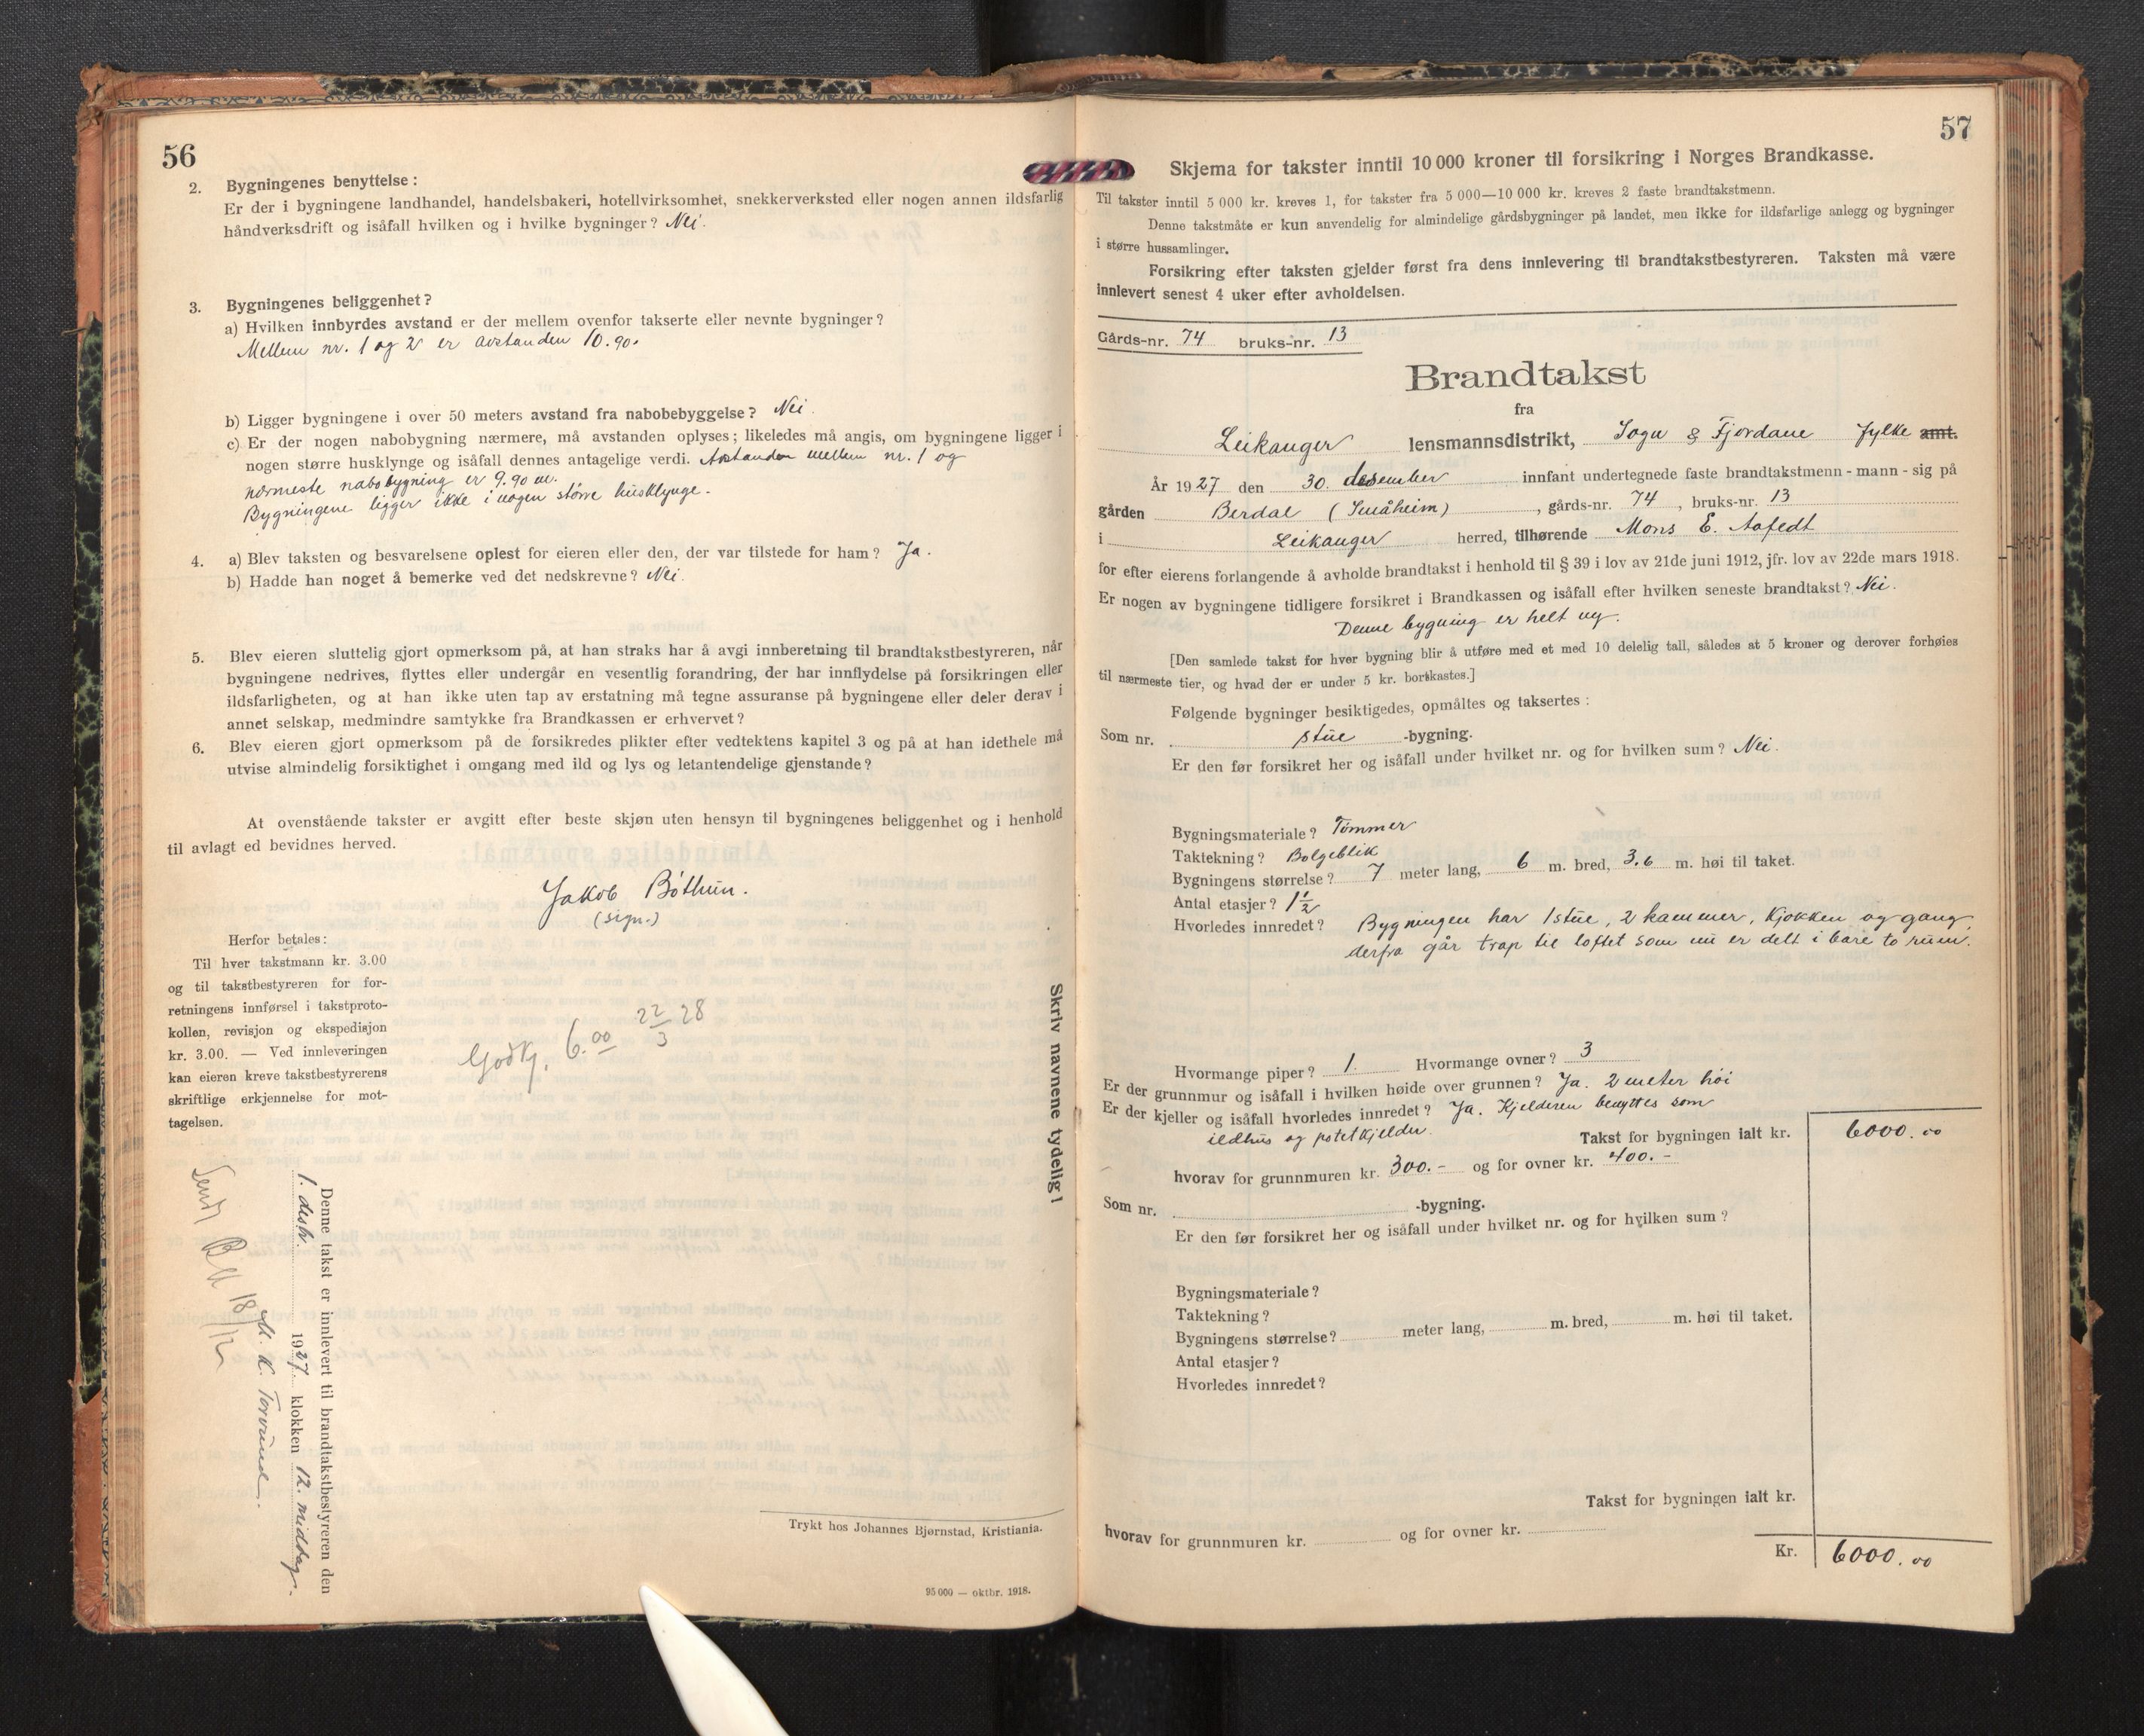 56
2. Bygningenes benyttelse:
Er der i bygningene landhandel, handelsbakeri, hotellvirksomhet, snekkerverksted eller nogen annen ildsfarlig
håndverksdrift og isåfall hvilken og i hvilke bygninger? Nei.
3. Bygningenes beliggenhet?
a) Hvilken innbyrdes avstand er der mellem ovenfor takserte eller nevnte bygninger?
Mellem nr. 1 og 2 er avstanden 10.90.
b) Ligger bygningene i over 50 meters avstand fra nabobebyggelse? Nei.
c) Er der nogen nabobygning nærmere, må avstanden oplyses; likeledes må angis, om bygningene ligger i
nogen større husklynge og isåfall dennes antagelige verdi. Avstanden mellem nr. 1 og
nærmeste nabobygning er 9.90 m.
Bygningene ligger ikke i nogen större husklynge.
4. a) Blev taksten og besvarelsene oplest for eieren eller den, der var tilstede for ham? Ja.
b) Hadde han noget å bemerke ved det nedskrevne? Nei.
5. Blev eieren sluttelig gjort opmerksom på, at han straks har å avgi innberetning til brandtakstbestyreren, når
bygningene nedrives, flyttes eller undergår en vesentlig forandring, der har innflydelse på forsikringen eller
ildsfarligheten, og at han ikke uten tap av erstatning må tegne assuranse på bygningene eller deler derav i
annet selskap, medmindre samtykke fra Brandkassen er erhvervet?
6. Blev eieren gjort opmerksom på de forsikredes plikter efter vedtektens kapitel 3 og på at han idethele må
utvise almindelig forsiktighet i omgang med ild og lys og letantendelige gjenstande?
At ovenstående takster er avgitt efter beste skjøn uten hensyn til bygningenes beliggenhet og i henhold
til avlagt ed bevidnes herved.
Jakob Böthun.
(sign.)
Herfor betales:
Til hver takstmann kr. 3.00
og til takstbestyreren for for-
retningens innførsel i takstproto-
kollen, revisjon og ekspedisjon
kr. 3.00. — Ved innleveringen
kan eieren kreve takstbestyrerens
skriftlige erkjennelse for mot-
tagelsen.
Godkj. 6.00 22/3 28
Skriv navnene tydelig!
Denne takst er innlevert til brandtakstbestyreren den
1. desbr. 1927 klokken 12. middag.
K. Torvund.
Sendt 18/12
Trykt hos Johannes Bjørnstad, Kristiania.
95 000 — oktbr. 1918.
57
Skjema for takster inntil 10 000 kroner til forsikring i Norges Brandkasse.
Til takster inntil 5 000 kr. kreves 1, for takster fra 5 000—10 000 kr. kreves 2 faste brandtakstmenn.
Denne takstmåte er kun anvendelig for almindelige gårdsbygninger på landet, men ikke for ildsfarlige anlegg og bygninger
i større hussamlinger.
Forsikring efter taksten gjelder først fra dens innlevering til brandtakstbestyreren. Taksten må være
innlevert senest 4 uker efter avholdelsen.
Gårds-nr. 74 bruks-nr. 13
Brandtakst
fra
Leikanger lensmannsdistrikt, Sogn & Fjordane fylke amt.
År 1927 den 30. desember innfant undertegnede faste brandtakstmenn - mann - sig på
gården Berdal (Småheim), gårds-nr. 74, bruks-nr. 13
i Leikanger herred, tilhørende Mons E. Aafedt
for efter eierens forlangende å avholde brandtakst i henhold til § 39 i lov av 21de juni 1912, jfr. lov av 22de mars 1918.
Er nogen av bygningene tidligere forsikret i Brandkassen og isåfall efter hvilken seneste brandtakst? Nei.
Denne bygning er helt ny.
[Den samlede takst for hver bygning blir å utføre med et med 10 delelig tall, således at 5 kroner og derover forhøies
til nærmeste tier, og hvad der er under 5 kr. bortkastes.]
Følgende bygninger besiktigedes, opmåltes og taksertes:
Som nr. stue -bygning.
Er den før forsikret her og isåfall under hvilket nr. og for hvilken sum? Nei.
Bygningsmateriale? Tömmer
Taktekning? Bolgeblik
Bygningens størrelse? 7 meter lang, 6 m. bred, 3.6 m. høi til taket.
Antal etasjer? 1½
Hvorledes innredet? Bygningen har 1 stue, 2 kammer, kjøkken og gang,
derfra går trap til loftet som nu er delt i bare to rum.
Hvormange piper? 1. Hvormange ovner? 3
Er der grunnmur og isåfall i hvilken høide over grunnen? Ja. 2 meter höi
Er der kjeller og isåfall hvorledes innredet? Ja. Kjelderen benyttes som
ildhus og potetkjelder.
Takst for bygningen ialt kr. 6000.00
hvorav for grunnmuren kr. 300.- og for ovner kr. 400.-
Som nr. -bygning.
Er den før forsikret her og isåfall under hvilket nr. og for hvilken sum?
Bygningsmateriale?
Taktekning?
Bygningens størrelse? meter lang, m. bred, m. høi til taket.
Antal etasjer?
Hvorledes innredet?
Takst for bygningen ialt kr.
hvorav for grunnmuren kr. og for ovner kr.
Kr. 6000.00